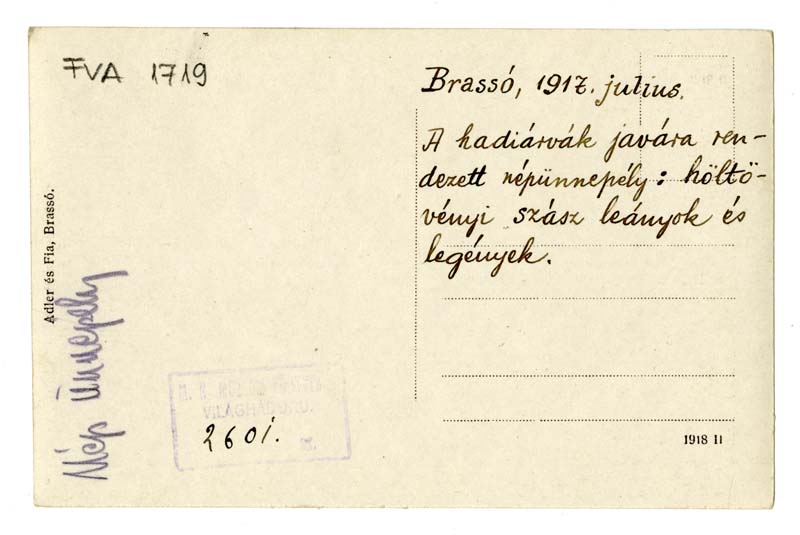 FVA 1719
Brassó, 1917. julius.
A hadiárvák javára ren-
dezett népünnepély: höltö-
vényi szász leányok és
legények.
Adler és Fia, Brassó.
Nép Ünnepély
VILÁGHÁBORU.
2601.
1918 11